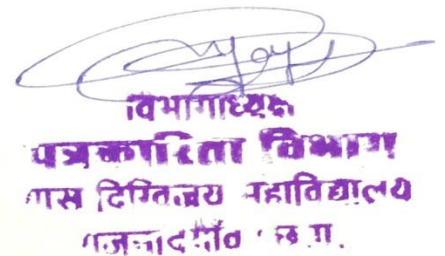 विभागाध्यक्ष
पत्रकारिता विभाग
दिग्विजय महाविद्यालय
राजनांदगाँव छ.ग.